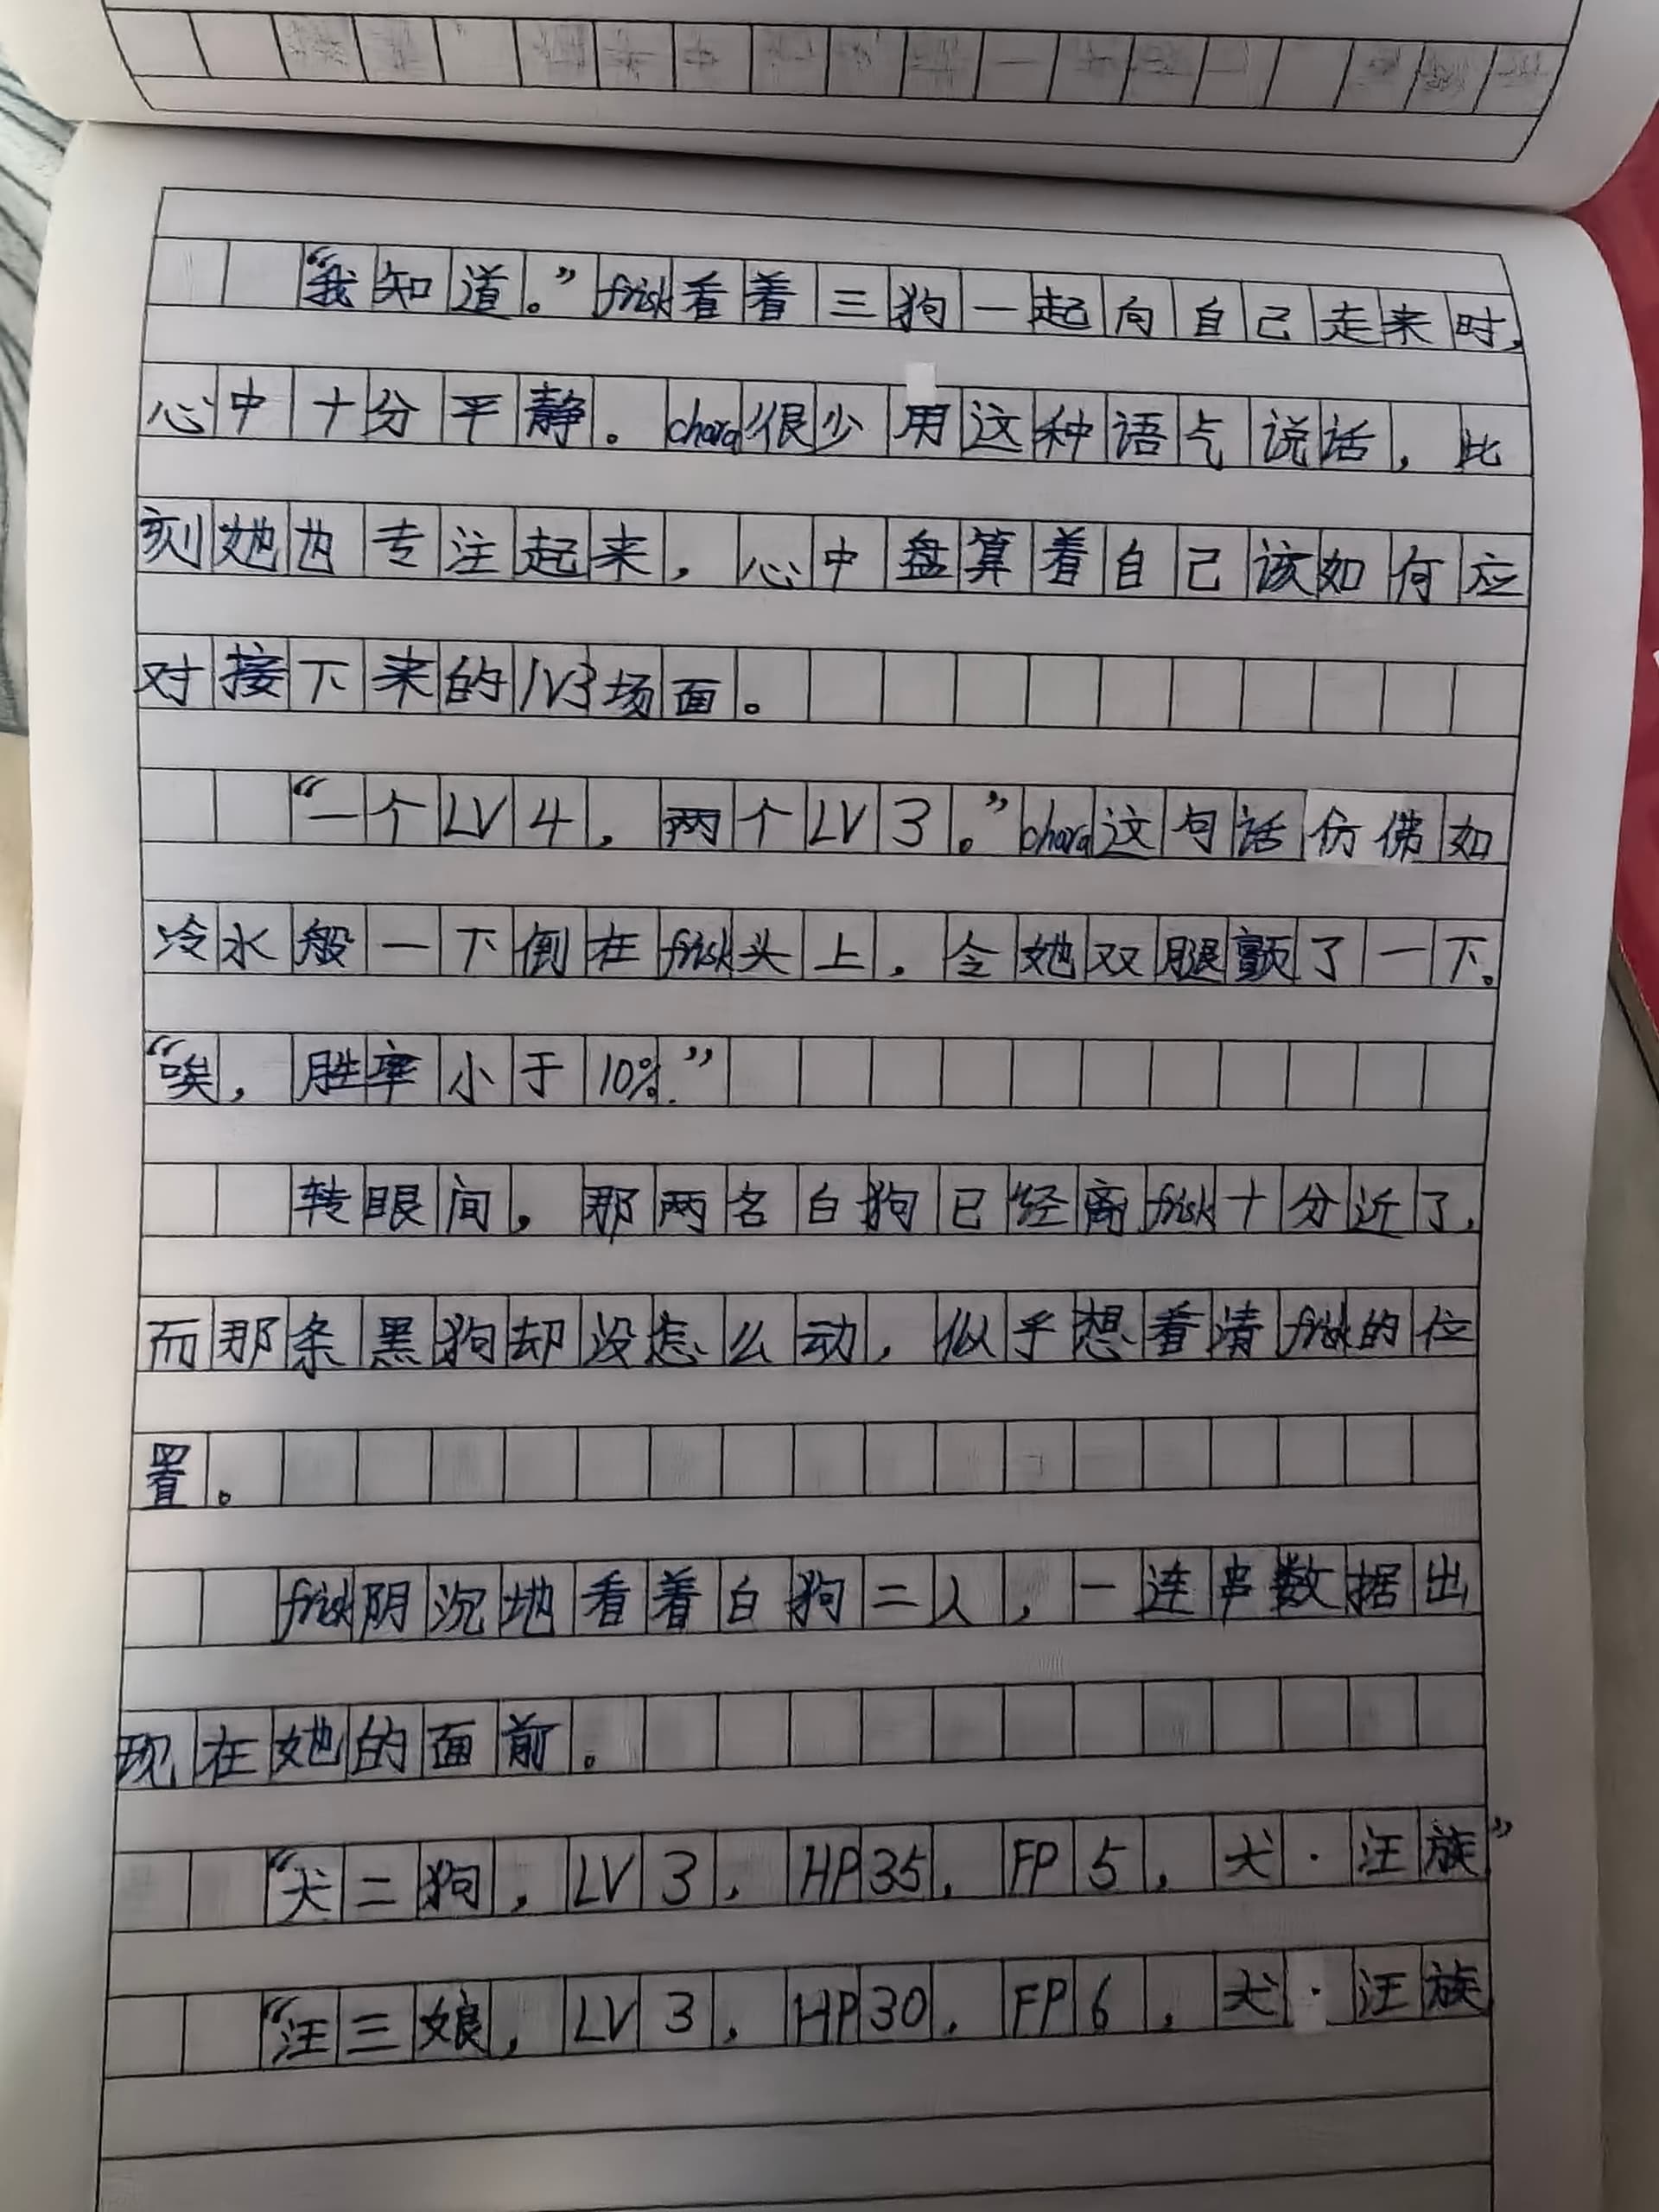 “我知道。”frisk看着三狗一起向自己走来时，
心中十分平静。chara很少用这种语气说话，此
刻她也专注起来，心中盘算着自己该如何应
对接下来的1V3场面。
“一个LV4，两个LV3。”chara这句话仿佛如
冷水般一下倒在frisk头上，令她双腿颤了一下。
“唉，胜率小于10%.”
转眼间，那两名白狗已经离frisk十分近了，
而那条黑狗却没怎么动，似乎想看清frisk的位
置。
frisk阴沉地看着白狗二人，一连串数据出
现在她的面前。
“犬二狗，LV3，HP35，FP5，犬·汪族”
“汪三娘，LV3，HP30，FP6，犬·汪族